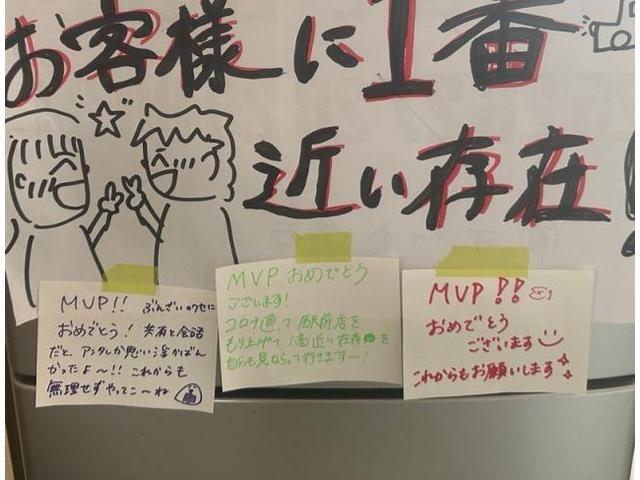 お客様に1番
近い存在!
MVP!! ぶんざいのクセに
おめでとう! 共有と会話
だと、アンタしか思い浮かばん
かったよ〜!! これからも
無理せずやってこ〜ね
MVP おめでとう
ございます!
コロナ通って駅前店を
もり上げて1番近い存在を
自らも見ならって行きますー!
MVP!!
おめでとう
ございます
これからもお願いします